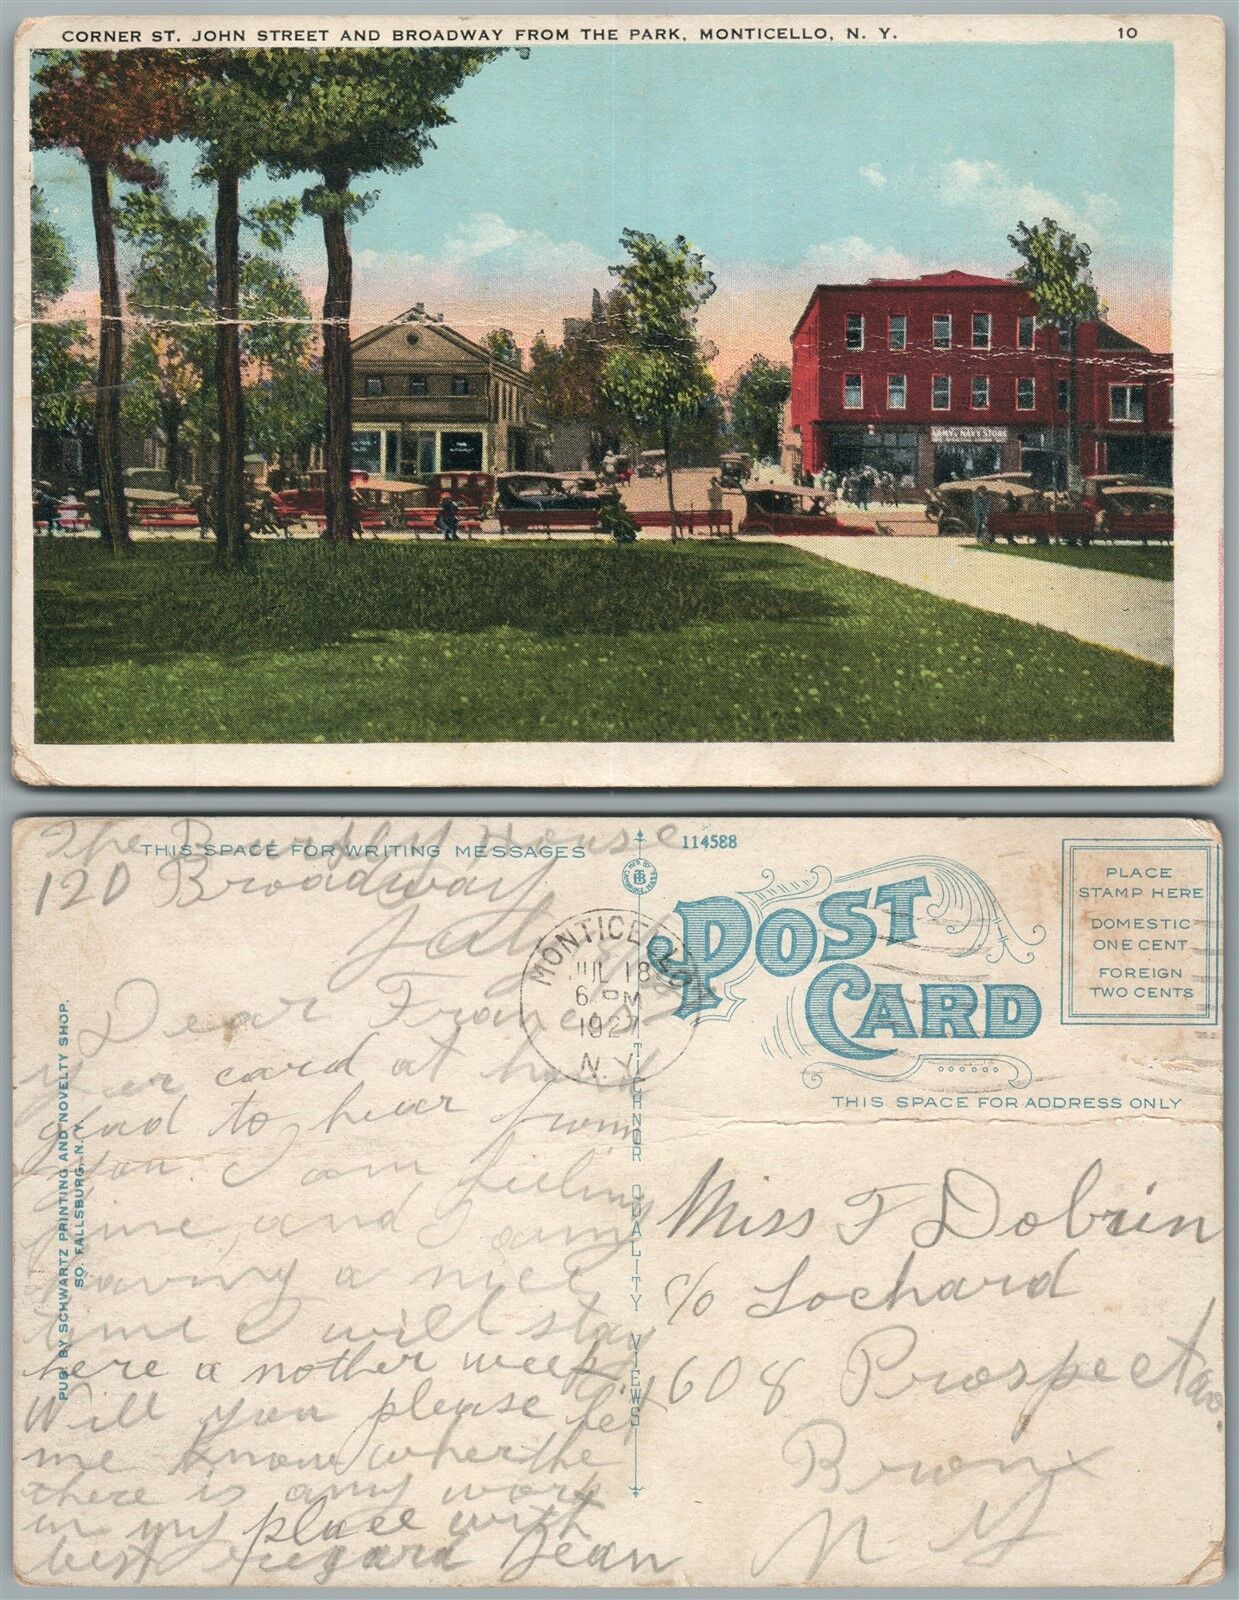 CORNER ST. JOHN STREET AND BROADWAY FROM THE PARK, MONTICELLO, N. Y. 10
ARMY & NAVY STORE
The House
THIS SPACE FOR WRITING MESSAGES
120 Broadway
July
Dear Frances
your card at hand
glad to hear from
you. I am feeling
fine, and I am
having a nice
time I will stay
here a nother week.
Will you please let
me know wherthe
there is any work
in my place with
best regard Jean
PUB. BY SCHWARTZ PRINTING AND NOVELTY SHOP,
SO. FALLSBURG, N. Y.
TICHNOR QUALITY VIEWS
114588
MONTICELLO
JUL 18
6 PM
1927
N.Y.
POST
CARD
PLACE
STAMP HERE
DOMESTIC
ONE CENT
FOREIGN
TWO CENTS
THIS SPACE FOR ADDRESS ONLY
Miss F Dobrin
c/o Lochard
608 Prospect Ave.
Bronx
N Y